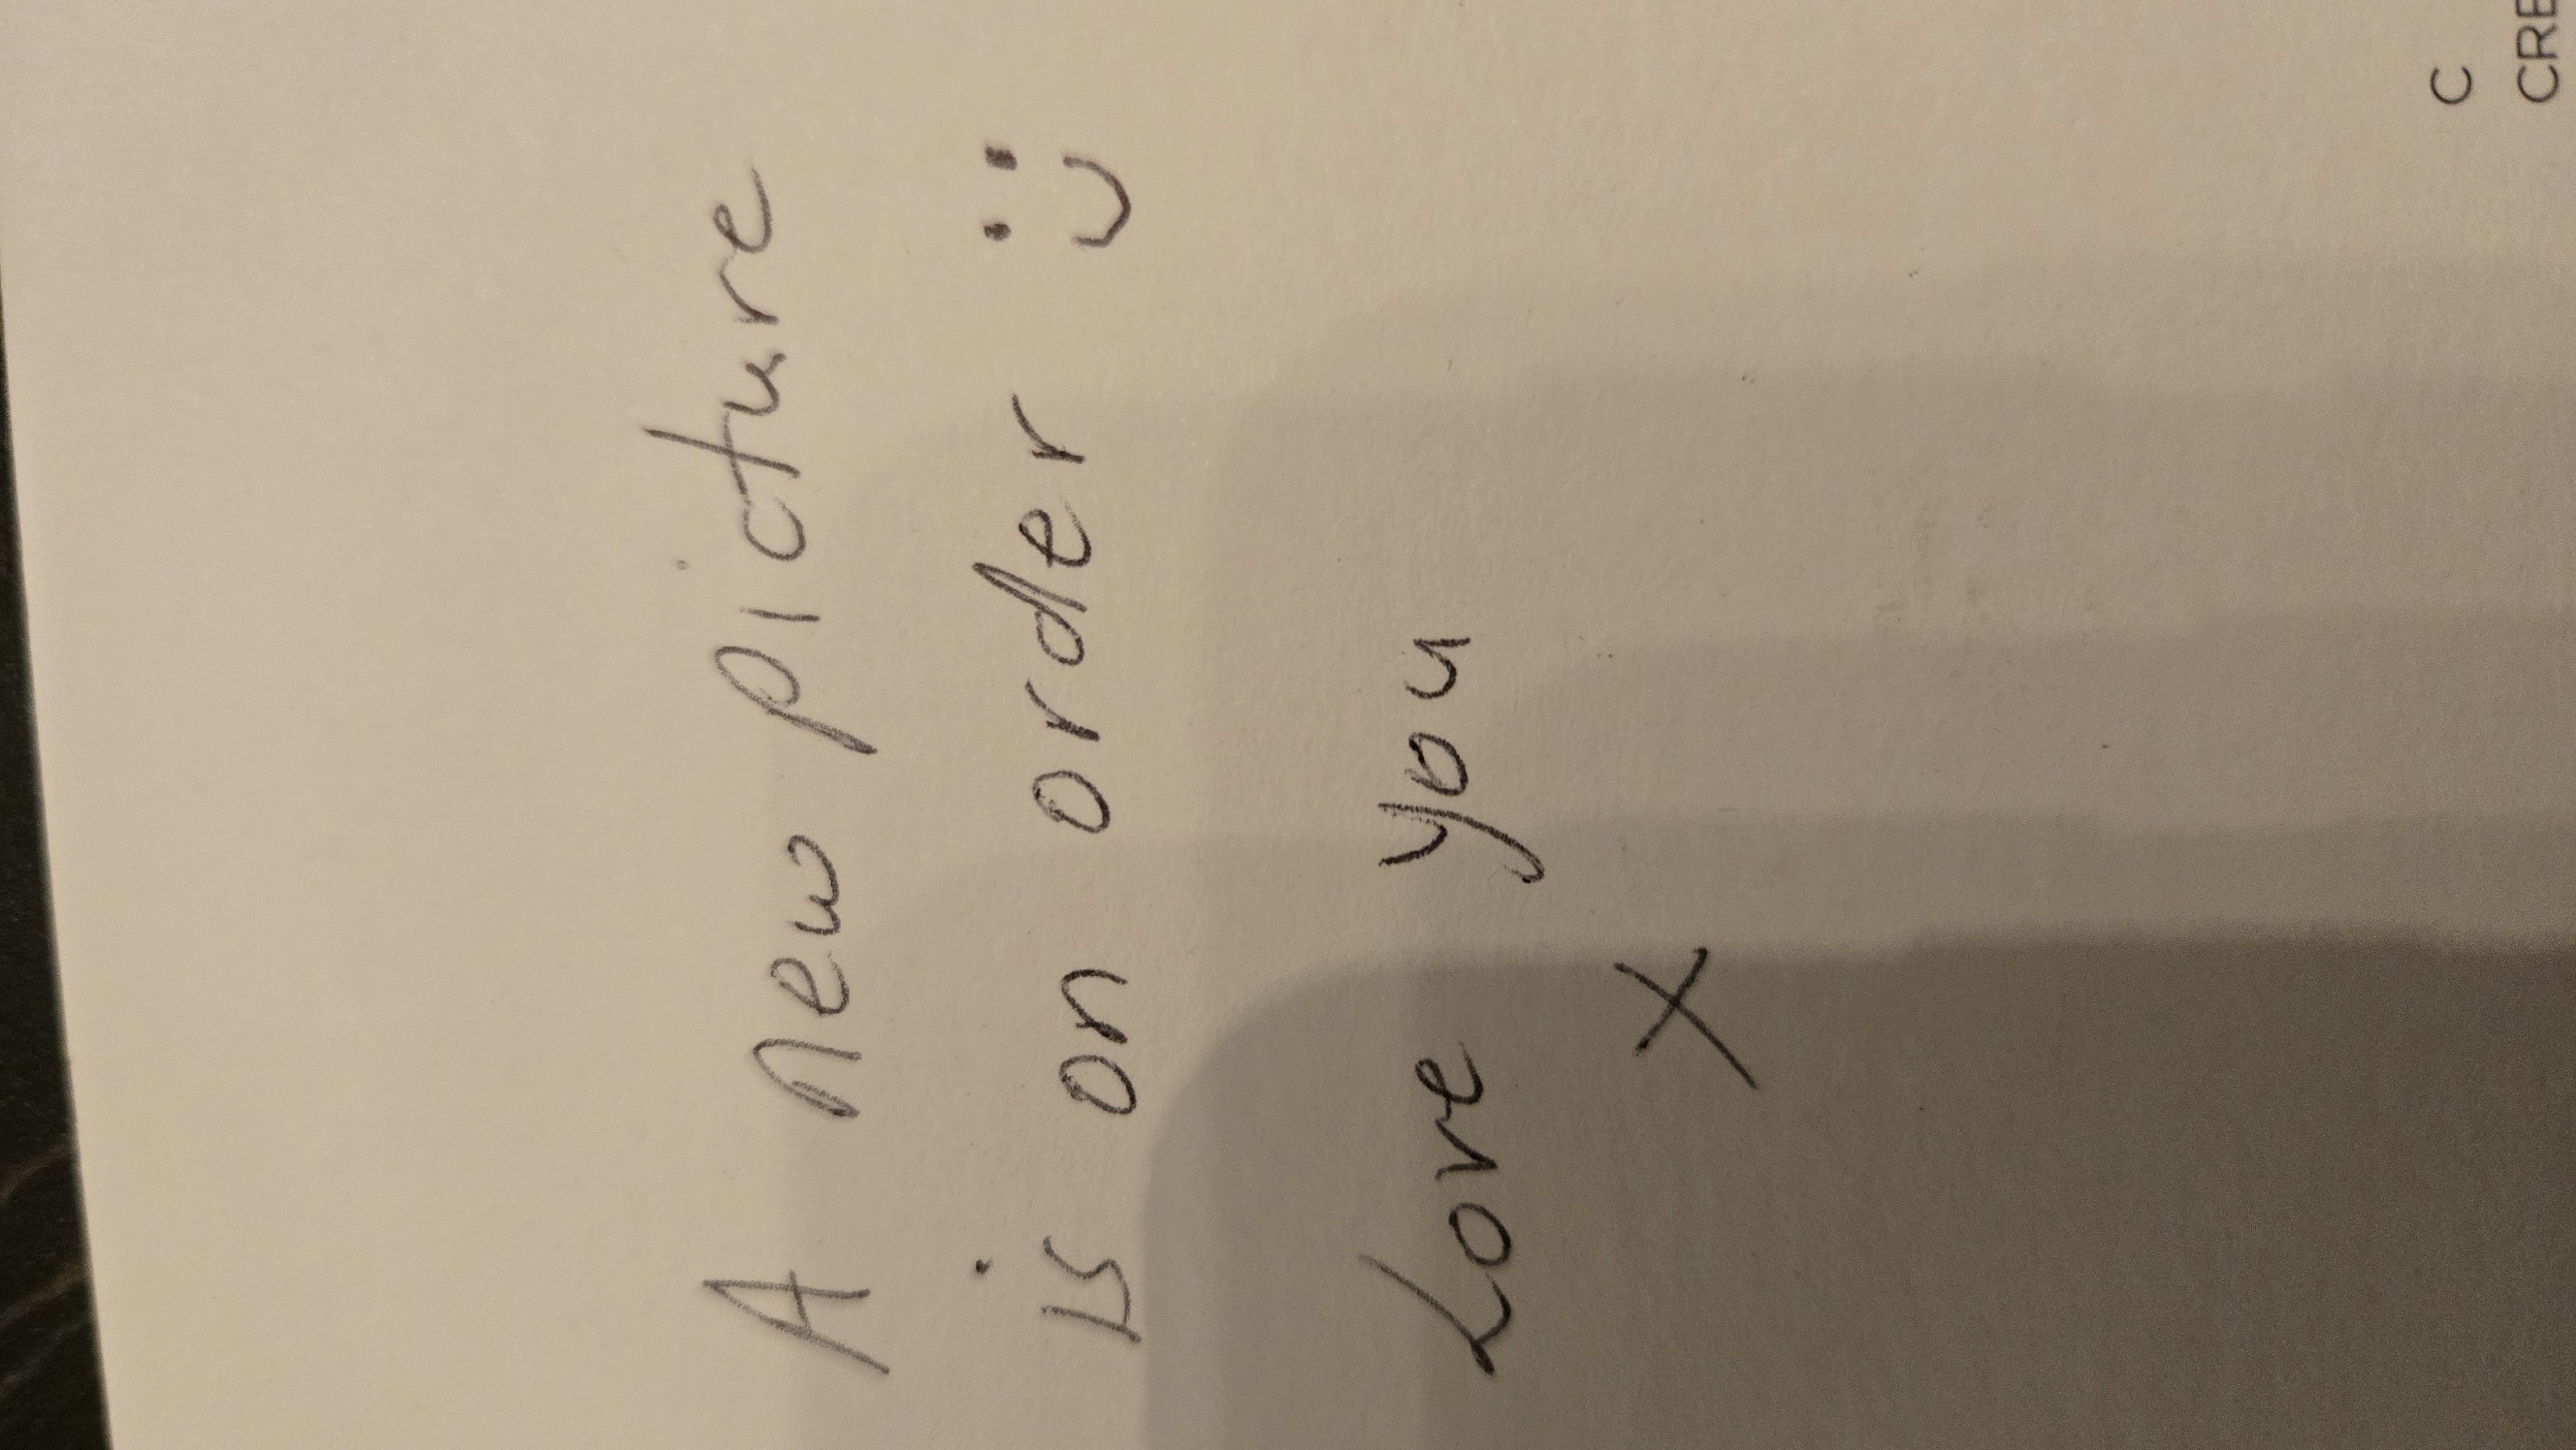 A new picture
is on order :)
Love you
X
C
CRE